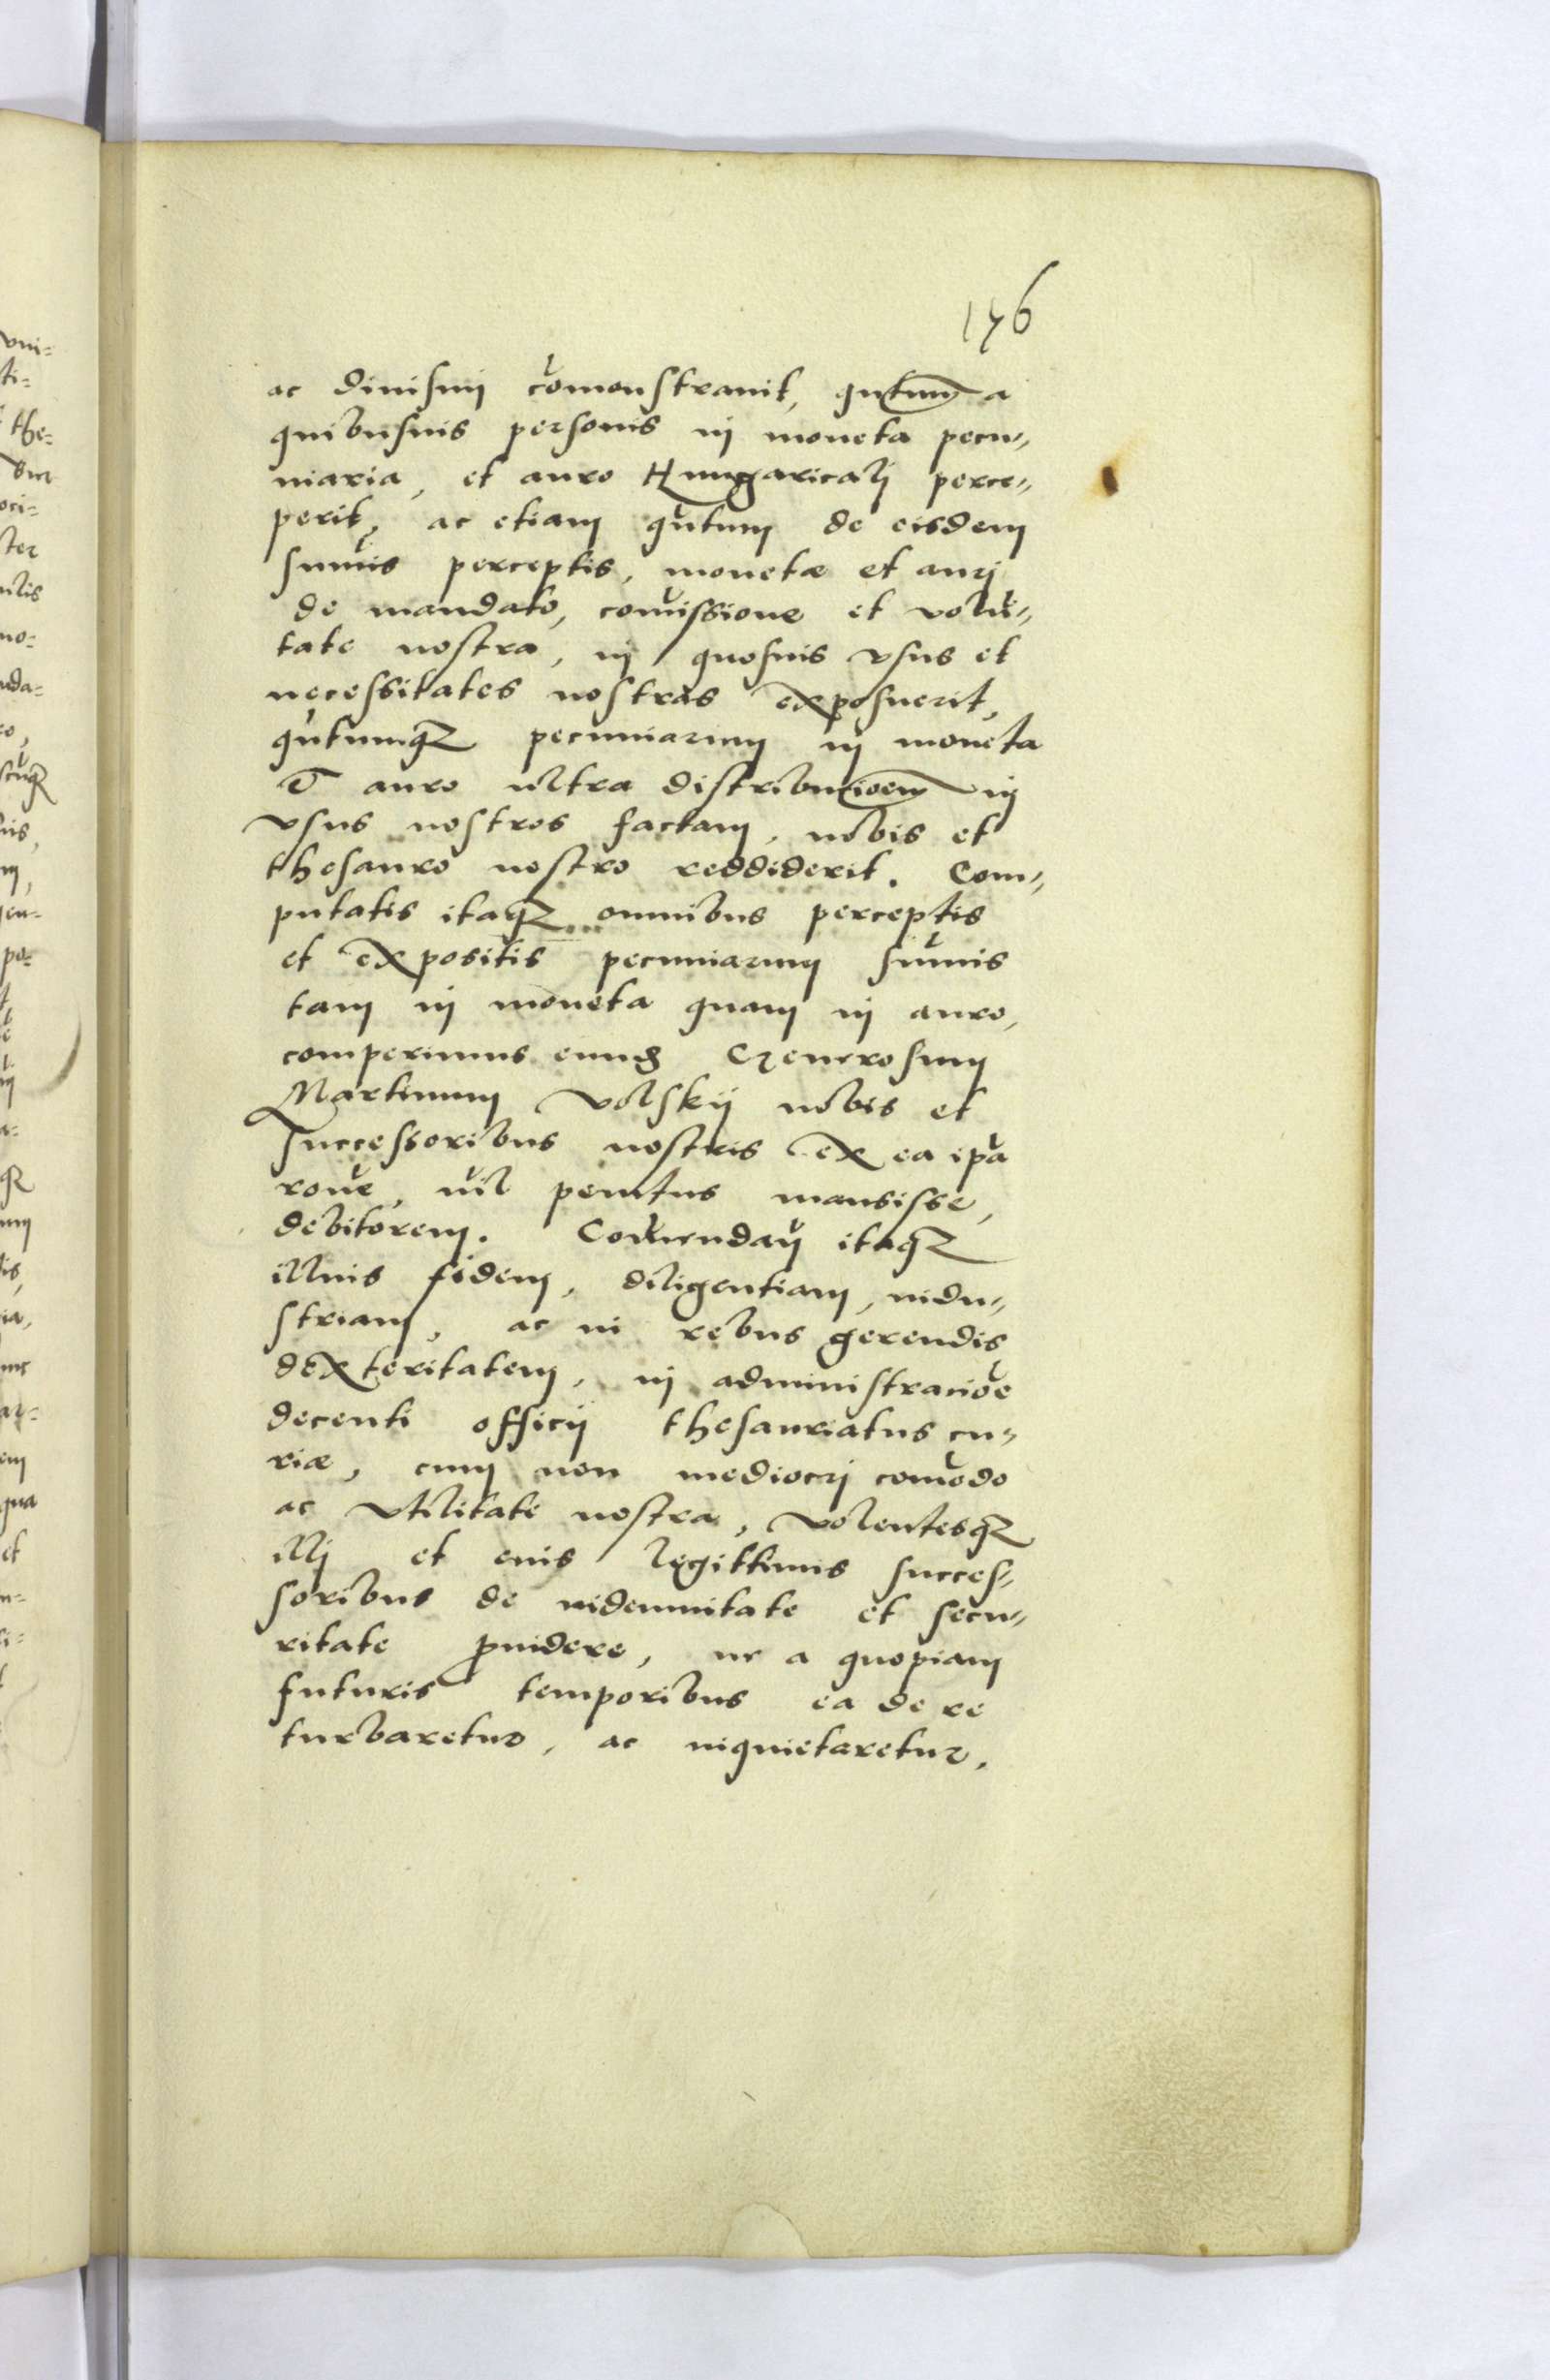 176
ac diuisim com̃onstrauit, qũtum a
quibusuis personis in moneta pecu=
niaria, et auro Hungaricalj perce=
perit, ac etiam qũtum de eisdem
sum̃is perceptis, monetæ et aurj
de mandato, com̃issione et volũ=
tate nostra, in quosuis vsus et
necessitates nostras exposuerit,
qũtumqꝫ pecuniarum in moneta
et auro ultra distribucioem in
vsus nostros factam, nobis et
thesauro nostro reddiderit. Com=
putatis itaqꝫ omnibus perceptis
et expositis pecuniarum sum̃is
tam in moneta quam in auro,
comperimus eund Generosum
Martinum Volskij nobis et
successoribus nostris ex ea ip̃a
rone, nil penitus mansisse,
debitorem. Com̃endañ itaqꝫ
illius fidem, diligentiam, indu=
striam, ac in rebus gerendis
dexteritatem, in administracioẽ
decenti officij thesauriatus cu=
riæ, cum non mediocrj com̃odo
ac vtilitate nostra, volentesqꝫ
illj et eius legittimis succes=
soribus de indemnitate et secu=
ritate ꝓuidere, ne a quopiam
futuris temporibus ea de re
turbaretur, ac inquietaretur,